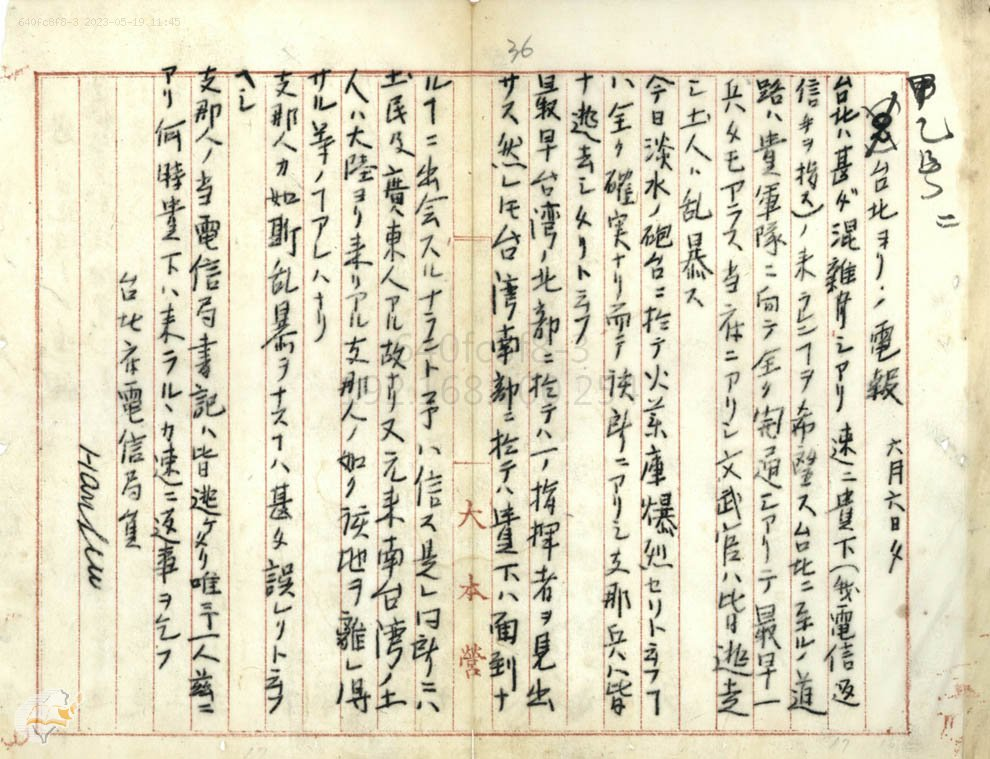 640fc8f8-3 2023-05-19 11:45
36
甲乙号ニ
台北ヨリノ電報 六月六日夕
台北ハ甚ダ混雑ヲ シアリ 速ニ貴下(我電信返
信手ヲ指ス)ノ来ランコヲ希望ス台北ニ至ルノ道
路ハ貴軍隊ニ向テ全ク開通シアリテ最早一
兵タモアラス当府ニアリシ文武官ハ皆逃走
シ土人ハ乱暴ス
今日淡水ノ砲台ニ於テ火薬庫爆烈セリト云フコ
ハ全ク確実ナリ而テ該所ニアリシ支那兵ハ皆
ナ逃去シタリト云フ
最早台湾ノ北部ニ於テハ一ノ指揮者ヲ見出
サス然レモ台湾南部ニ於テハ貴下ハ面倒ナ
ルコニ出会スルナラント予ハ信ス是レ同所ニハ
土民及廣東人アル故ナリ又元来南台湾ノ土
人ハ大陸ヨリ来リアル支那人ノ如ク該地ヲ離レ得
サル筈ノコアレハナリ
支那人カ如斯乱暴ヲナスコハ甚タ誤レリト云フ
ヘシ
支那人ノ当電信局書記ハ皆逃ケタリ唯予一人茲ニ
アリ何時貴下ハ来ラルヽカ速ニ返事ヲ乞フ
台北府電信局員
Hansen
大本営
640fc8f8-3